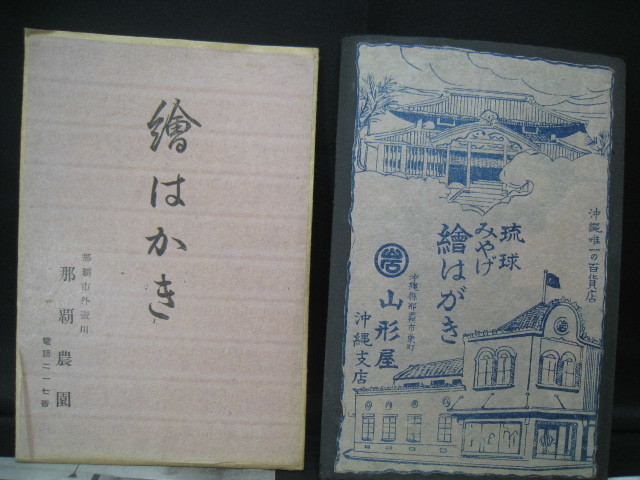 繪はかき
那覇市外壺川
那覇農園
電話二一七番
沖縄唯一の百貨店
琉球
みやげ
繪はがき
沖縄縣那覇市東町
山形屋
沖縄支店